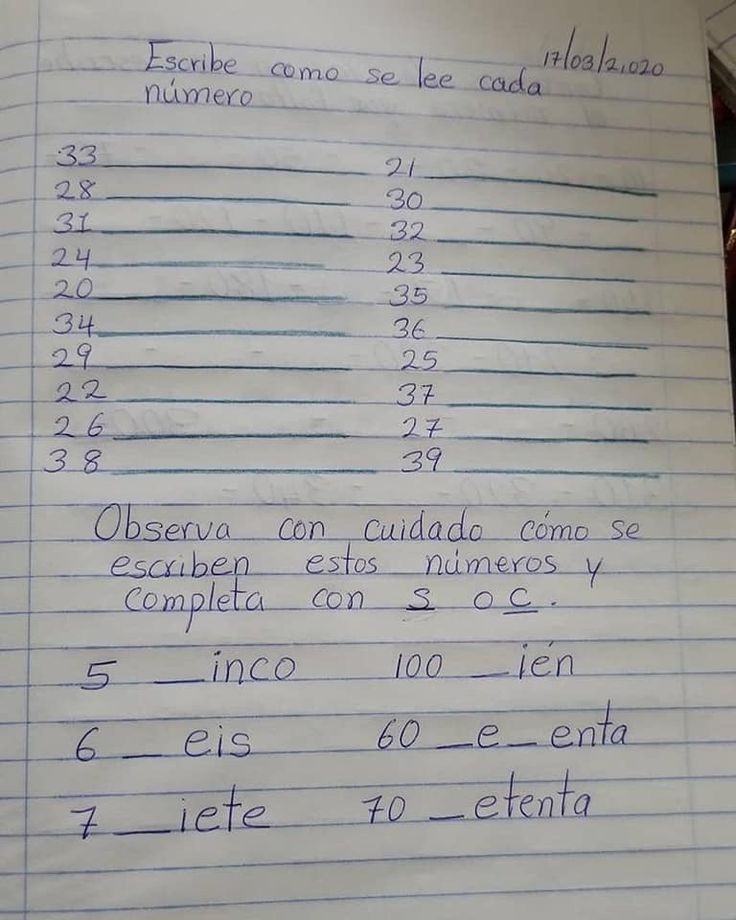 17/03/2,020
Escribe como se lee cada
número
33 ____________ 21 ____________
28 ____________ 30 ____________
31 ____________ 32 ____________
24 ____________ 23 ____________
20 ____________ 35 ____________
34 ____________ 36 ____________
29 ____________ 25 ____________
22 ____________ 37 ____________
26 ____________ 27 ____________
38 ____________ 39 ____________
Observa con cuidado cómo se
escriben estos números y
completa con s o c.
5 __inco 100 __ién
6 __ eis 60 __e__enta
7 __iete 70 __etenta